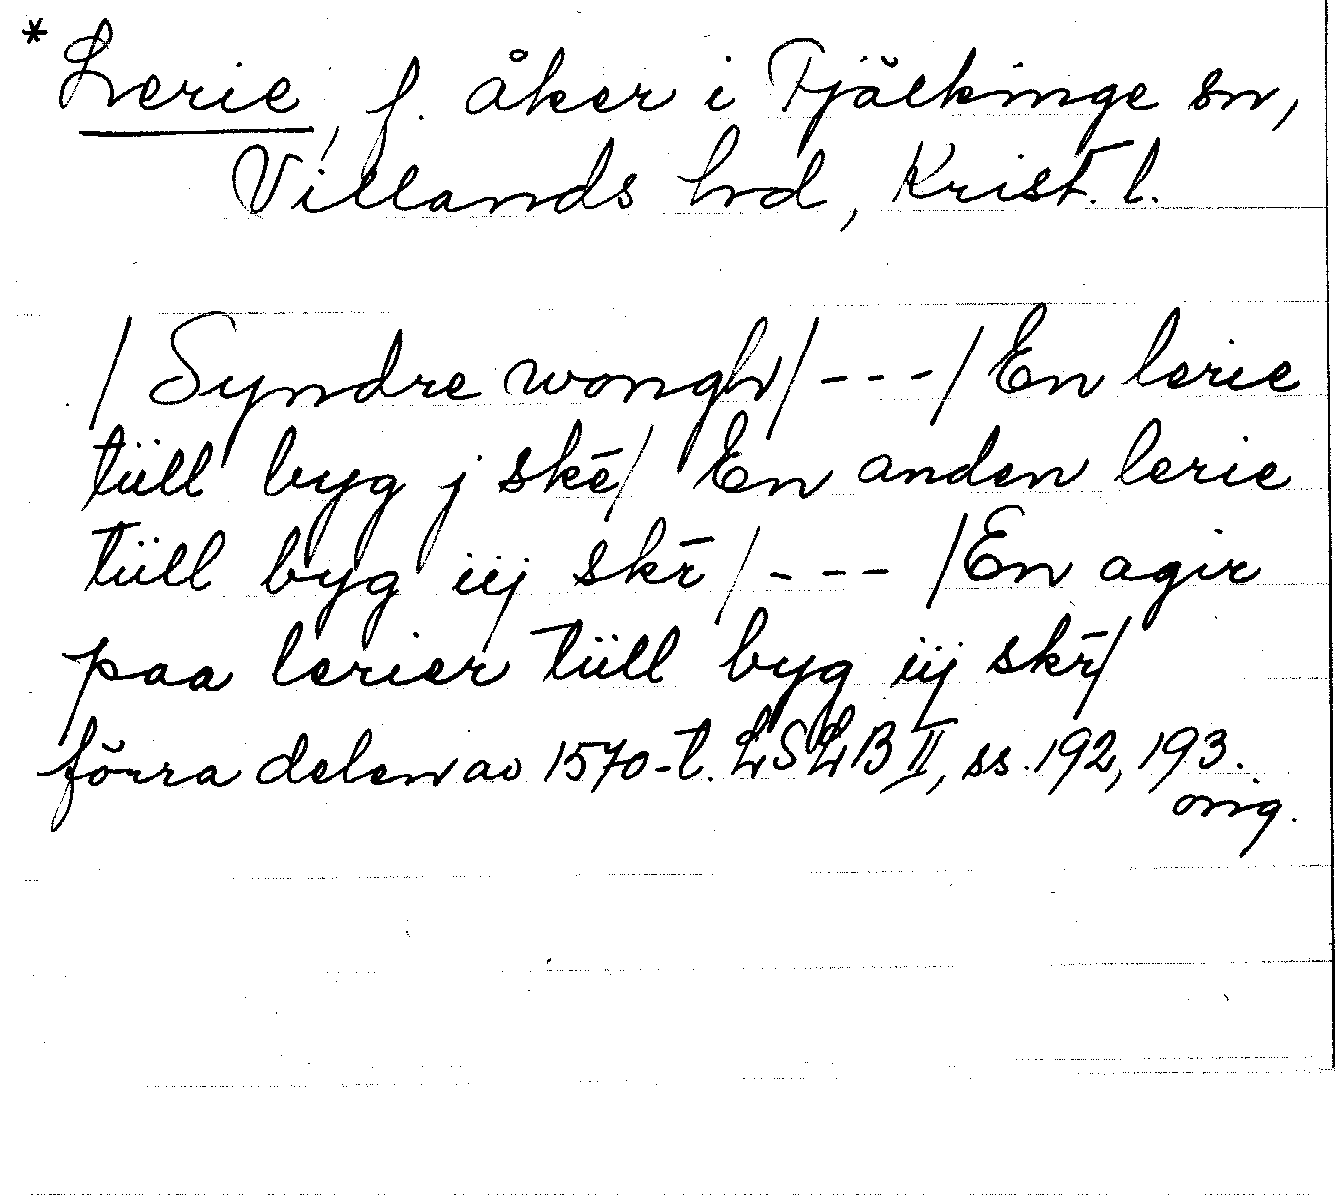 * Lerie, f. åker i Fjälkinge sn,
Villands hd, Krist. l.
/ Syndre wongh/ --- / En lerie
tüll byg j skē/ En anden lerie
tüll byg iij skr̄ / --- /En agir
paa lerier tüll byg iij skr̄/
förra delen av 1570-t. LSLB II, ss. 192, 193.
orig.